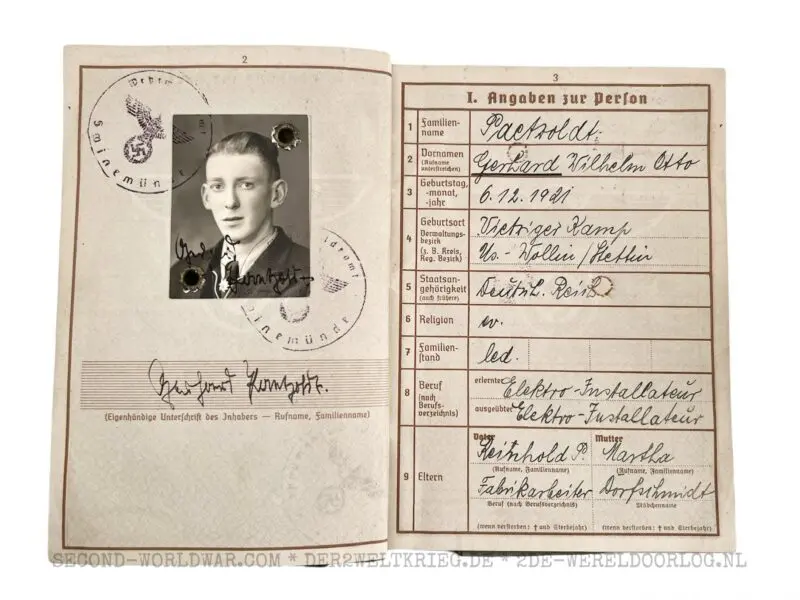 2
Swinemünde
Gerhard
Paetzoldt
Swinemünde
Gerhard Paetzoldt.
(Eigenhändige Unterschrift des Inhabers — Rufname, Familienname)
3
I. Angaben zur Person
1 Familien-
name
Paetzoldt.
2 Vornamen
(Rufname
unterstreichen)
Gerhard Wilhelm Otto
3 Geburtstag,
-monat,
-jahr
6.12.1921
4 Geburtsort
Verwaltungs-
bezirk
(z. B. Kreis,
Reg. Bezirk)
Vietziger Kamp
Us.-Wollin/Stettin
5 Staatsan-
gehörigkeit
(auch frühere)
Deutsch. Reich
6 Religion
ev.
7 Familien-
stand
led.
8 Beruf
(nach
Berufs-
verzeichnis)
erlernter Elektro-Installateur
ausgeübter Elektro-Installateur
9 Eltern
Vater
Reinhold P.
(Rufname, Familienname)
Fabrikarbeiter
Beruf (nach Berufsverzeichnis)
(wenn verstorben: † und Sterbejahr)
Mutter
Martha
(Rufname, Familienname)
Dorfschmidt
Mädchenname
(wenn verstorben: † und Sterbejahr)
SECOND-WORLDWAR.COM * DER2WELTKRIEG.DE * 2DE-WERELDOORLOG.NL